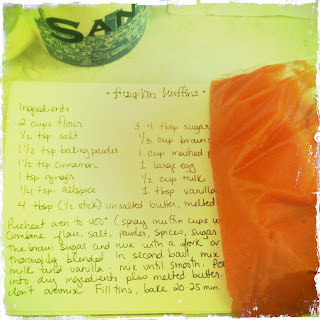 SAN
· Pumpkin Muffins ·
Ingredients:
2 cups flour
1/2 tsp. salt
1 1/2 tsp baking powder
1 1/2 tsp cinnamon
1 tsp ginger
1/4 tsp allspice
3-4 tbsp sugar
1/3 cup brown
1 cup mashed p
1 large egg
1/2 cup milk
1 tbsp vanilla
4 tbsp (1/2 stick) unsalted butter, melted
Preheat oven to 400° (spray muffin cups w
Combine flour, salt, powder, spices, sugar
the brown sugar and mix with a fork or
thoroughly blended. In second bowl, mix
milk and vanilla; mix until smooth. Po
into dry ingredients plus melted butter.
don't overmix. Fill tins, bake 20-25 min.